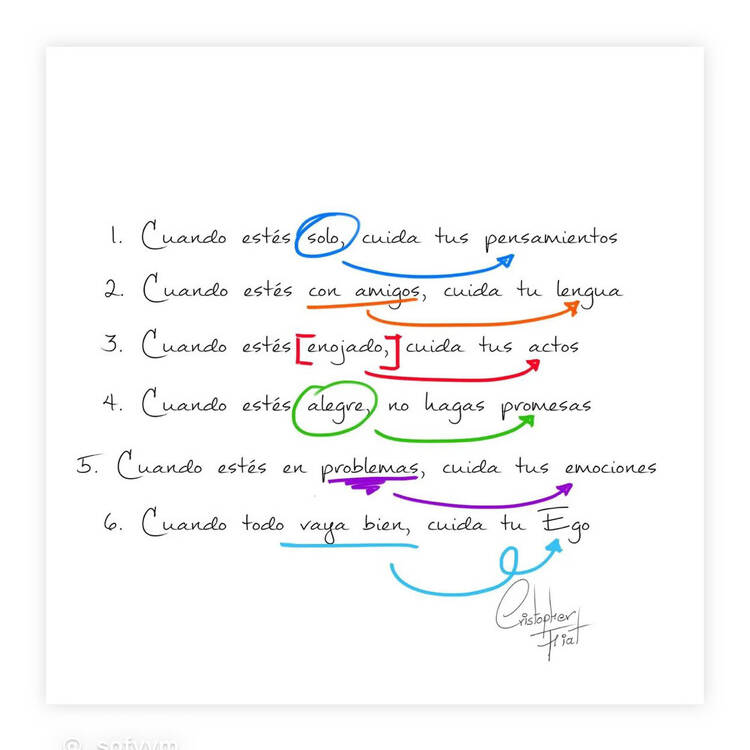 1. Cuando estés solo, cuida tus pensamientos
2. Cuando estés con amigos, cuida tu lengua
3. Cuando estés [enojado,] cuida tus actos
4. Cuando estés alegre, no hagas promesas
5. Cuando estés en problemas, cuida tus emociones
6. Cuando todo vaya bien, cuida tu Ego
Cristopher